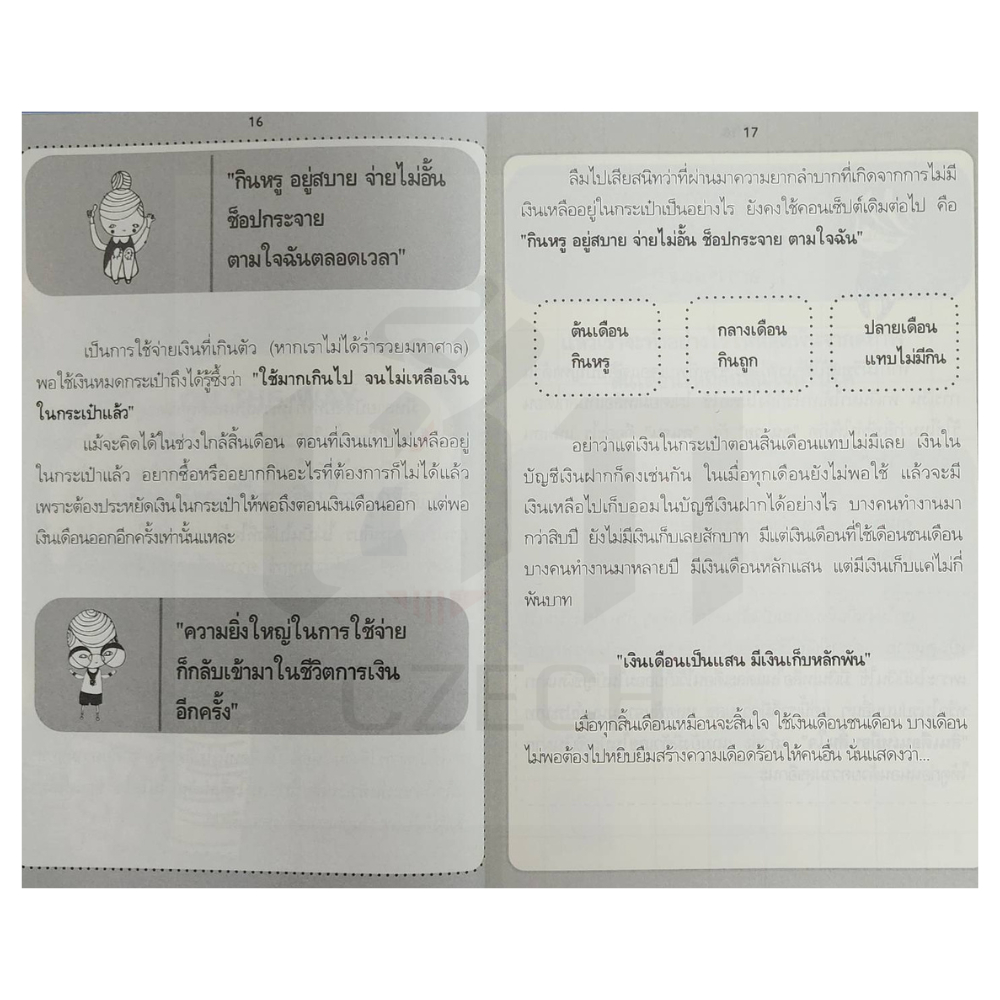 16
"กินหรู อยู่สบาย จ่ายไม่อั้น
ช็อปกระจาย
ตามใจฉันตลอดเวลา"
เป็นการใช้จ่ายเงินที่เกินตัว (หากเราไม่ได้ร่ำรวยมหาศาล)
พอใช้เงินหมดกระเป๋าถึงได้รู้ซึ้งว่า "ใช้มากเกินไป จนไม่เหลือเงิน
ในกระเป๋าแล้ว"
แม้จะคิดได้ในช่วงใกล้สิ้นเดือน ตอนที่เงินแทบไม่เหลืออยู่
ในกระเป๋าแล้ว อยากซื้อหรืออยากกินอะไรที่ต้องการก็ไม่ได้แล้ว
เพราะต้องประหยัดเงินในกระเป๋าให้พอถึงตอนเงินเดือนออก แต่พอ
เงินเดือนออกอีกครั้งเท่านั้นแหละ
"ความยิ่งใหญ่ในการใช้จ่าย
ก็กลับเข้ามาในชีวิตการเงิน
อีกครั้ง"
17
ลืมไปเสียสนิทว่าที่ผ่านมาความยากลำบากที่เกิดจากการไม่มี
เงินเหลืออยู่ในกระเป๋าเป็นอย่างไร ยังคงใช้คอนเซ็ปต์เดิมต่อไป คือ
"กินหรู อยู่สบาย จ่ายไม่อั้น ช็อปกระจาย ตามใจฉัน"
ต้นเดือน
กินหรู
กลางเดือน
กินถูก
ปลายเดือน
แทบไม่มีกิน
อย่าว่าแต่เงินในกระเป๋าตอนสิ้นเดือนแทบไม่มีเลย เงินใน
บัญชีเงินฝากก็คงเช่นกัน ในเมื่อทุกเดือนยังไม่พอใช้ แล้วจะมี
เงินเหลือไปเก็บออมในบัญชีเงินฝากได้อย่างไร บางคนทำงานมา
กว่าสิบปี ยังไม่มีเงินเก็บเลยสักบาท มีแต่เงินเดือนที่ใช้เดือนชนเดือน
บางคนทำงานมาหลายปี มีเงินเดือนหลักแสน แต่มีเงินเก็บแค่ไม่กี่
พันบาท
"เงินเดือนเป็นแสน มีเงินเก็บหลักพัน"
เมื่อทุกสิ้นเดือนเหมือนจะสิ้นใจ ใช้เงินเดือนชนเดือน บางเดือน
ไม่พอต้องไปหยิบยืมสร้างความเดือดร้อนให้คนอื่น นั่นแสดงว่า...
CZECH